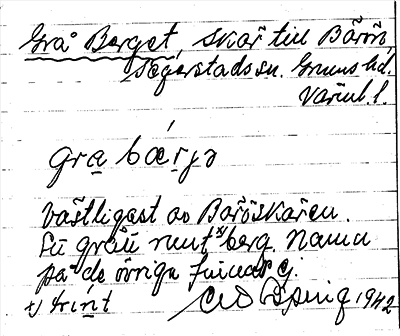 Grå Berget, skär till Bärön,
Segerstads sn. Grums hd.
Värml. l.
gra bærjə
Västligast av Baröskären.
En gråu runt x) berg. Namn
på de övriga finnas ej.
x) trint 1942